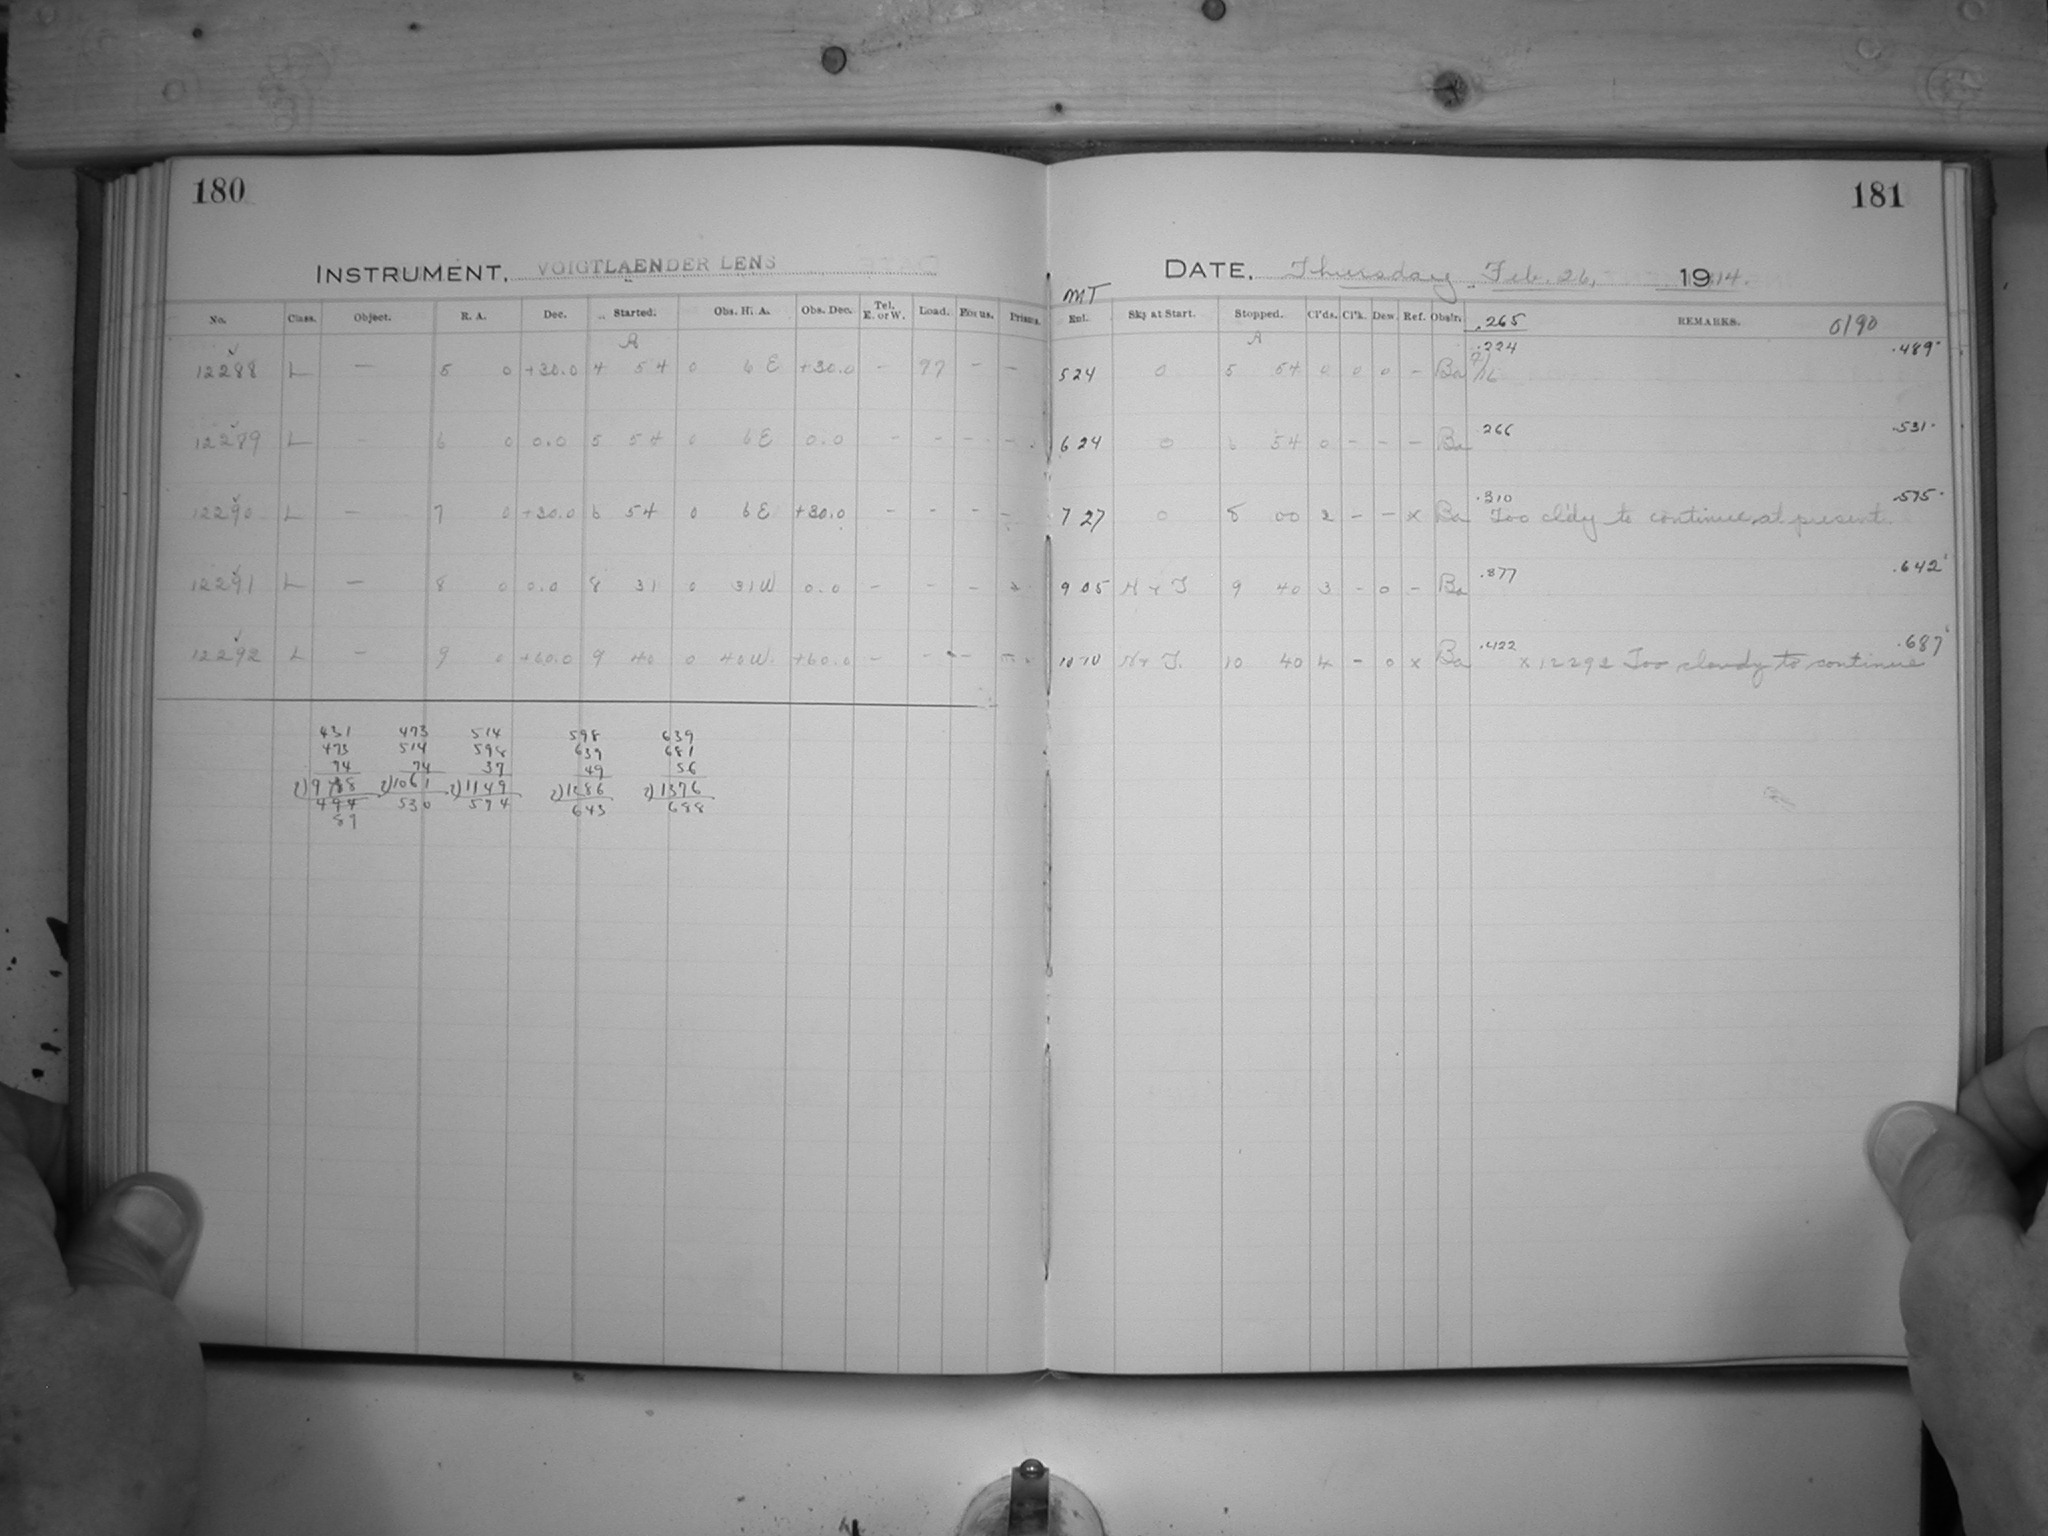 180
INSTRUMENT. VOIGTLAENDER LENS
No. Class. Object. R. A. Dec. Started. Obs. H. A. Obs. Dec. Tel. E. or W. Load. Focus. Prisms.
A
12288 L — 5 0 +30.0 4 54 0 6 E +30.0 - 97 - -
12289 L - 6 0 0.0 5 54 0 6 E 0.0 - - - -
12290 L — 7 0 +30.0 6 54 0 6 E +30.0 - - - -
12291 L — 8 0 0.0 8 31 0 31 W 0.0 - - -
12292 L — 9 0 +60.0 9 40 0 40 W. +60.0 - - -
431 473 514 598 639
473 514 598 639 681
74 74 37 49 56
2)1061 2)1149 2)1286 2)1376
494 530 574 643 688
87
181
DATE. Thursday, Feb. 26, 1914.
MT
Enl. Sky at Start. Stopped. Cl'ds. Cl'k. Dew. Ref. Obsir. .265 REMARKS. 0190
A .224 .489
524 0 5 54 0 0 0 - Ba 7/16
.266 .531
624 0 6 54 0 - - - Ba
.310 .575
727 0 8 00 2 - - x Ba Too cldy to continue at present
.377 .642
905 H + T 9 40 3 - 0 - Ba
.422 .687
1010 H + T. 10 40 4 - 0 x Ba x 12292 Too cloudy to continue